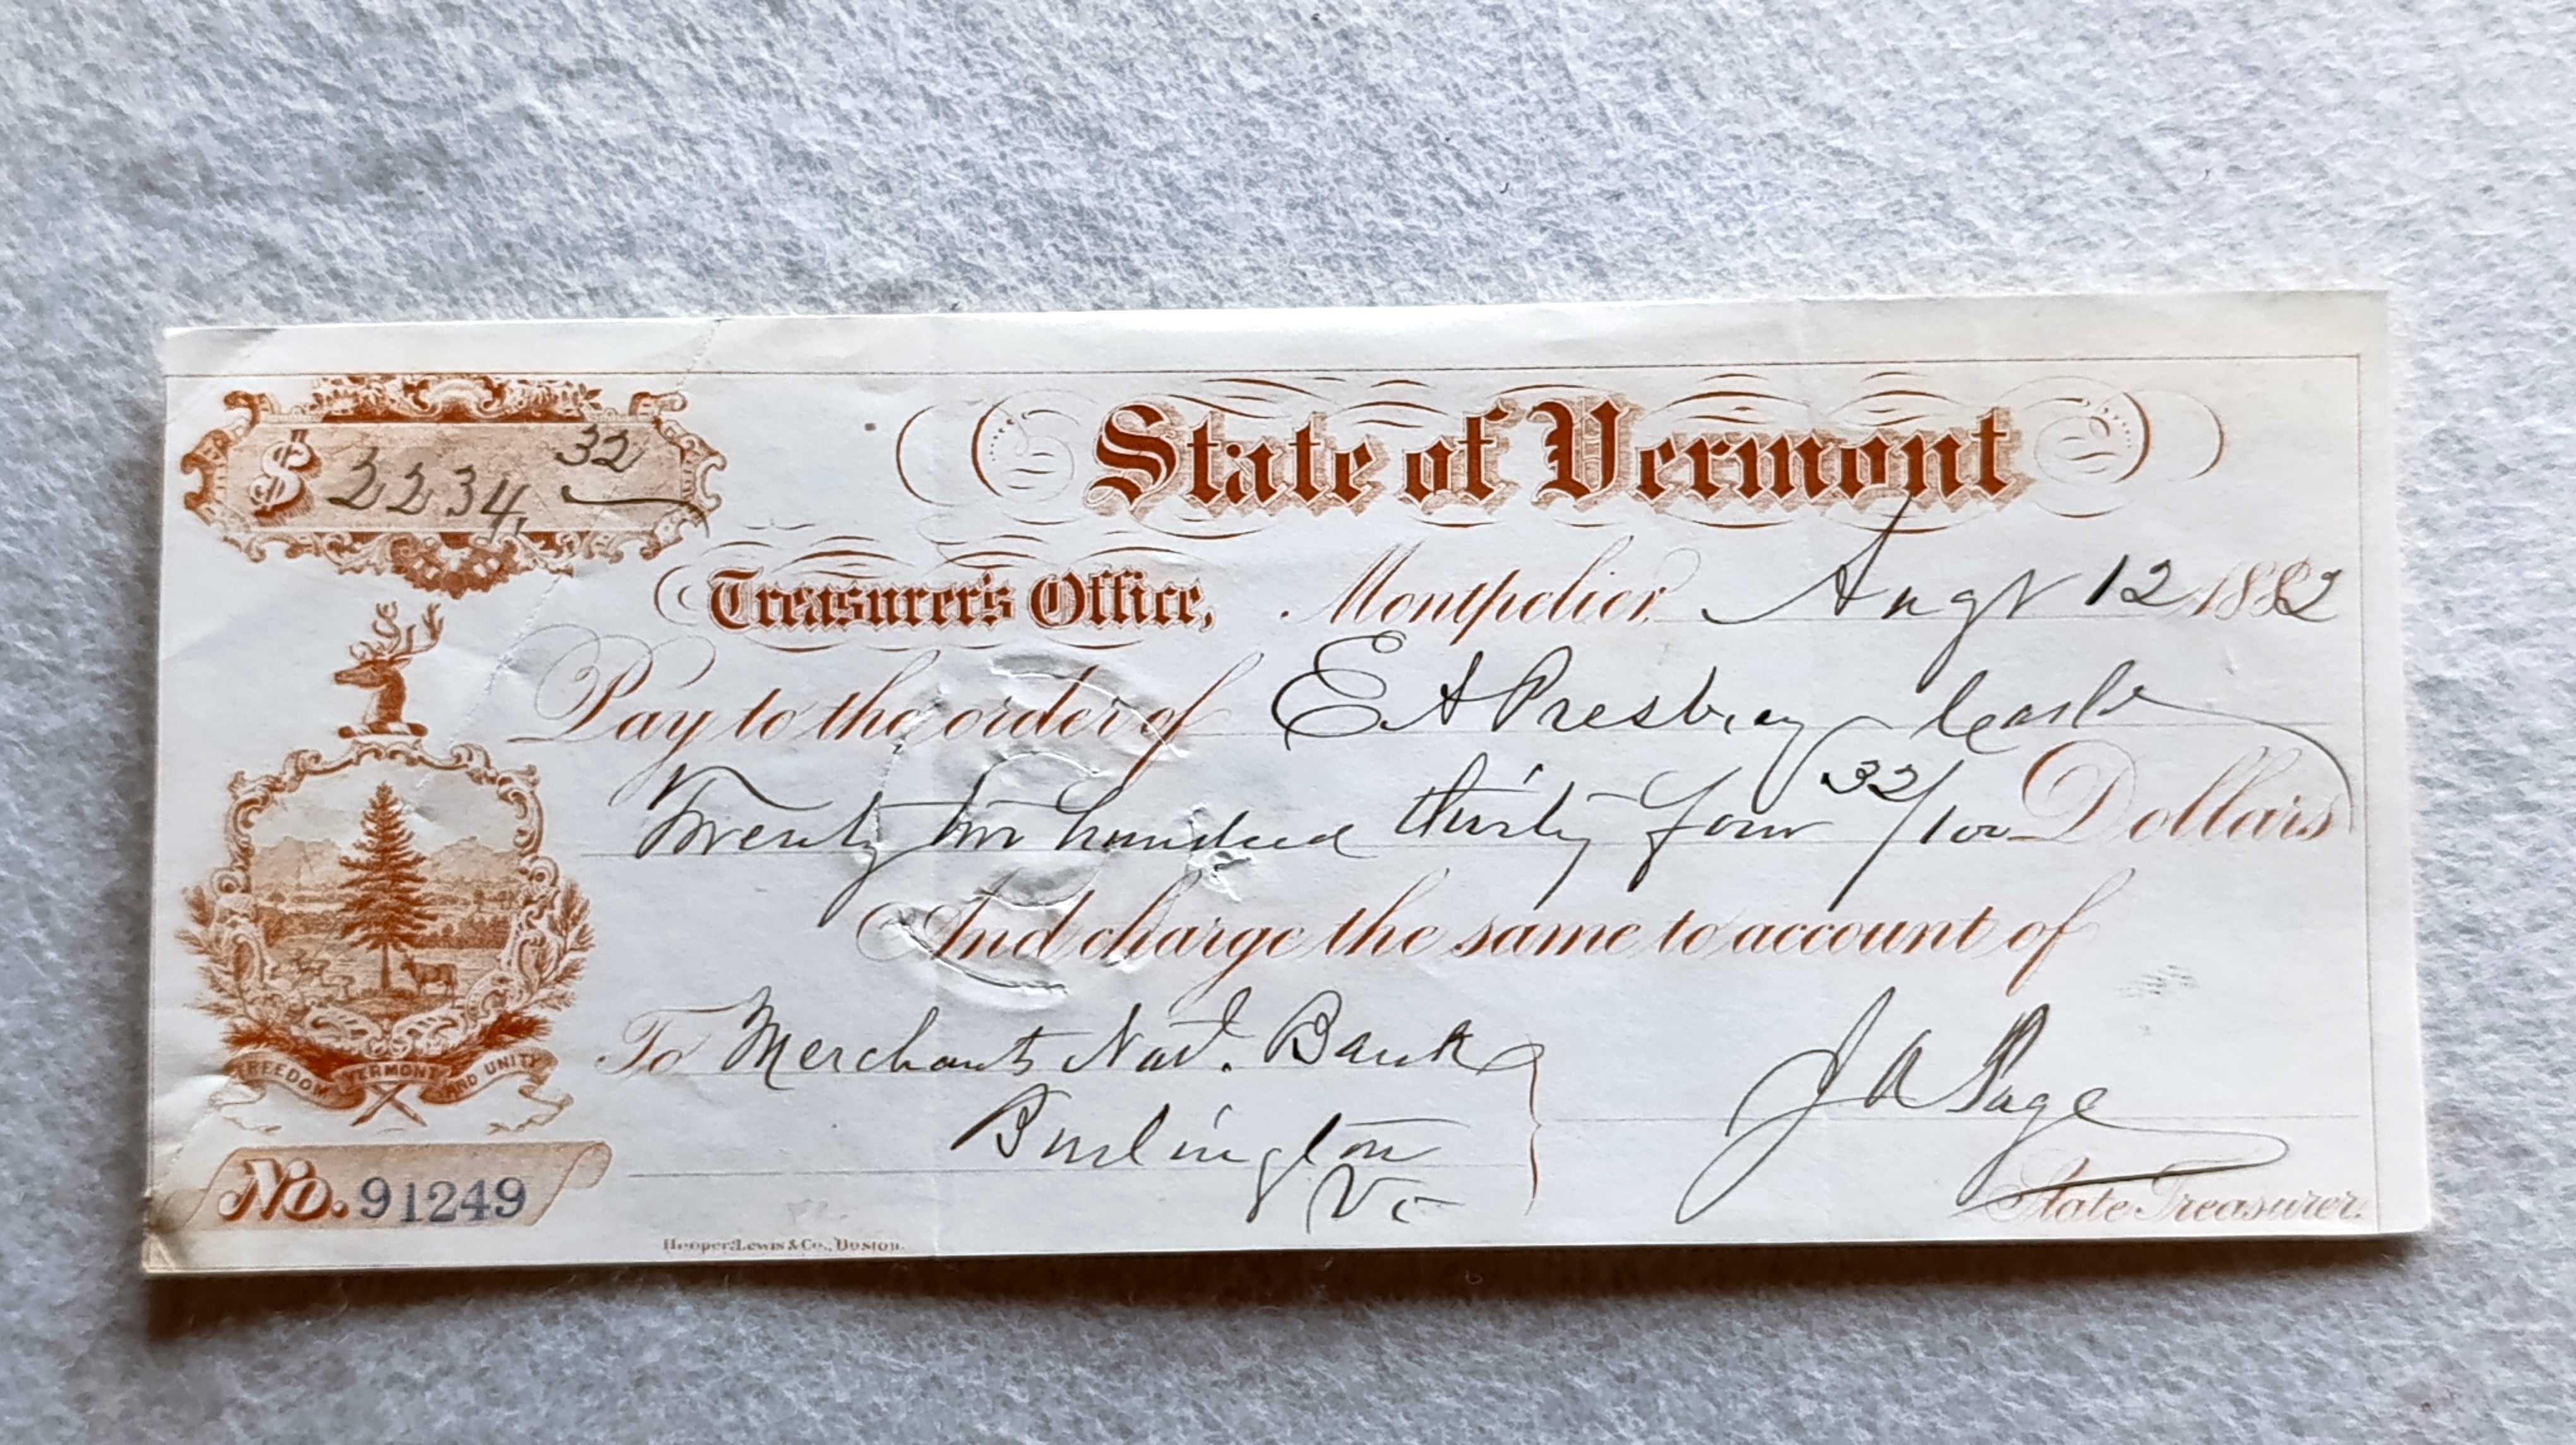 $ 2234, 32
State of Vermont
Treasurer's Office, Montpelier, Augt 12 1882
Pay to the order of E A Presbrey Cash
Twenty two hundred thirty four 32/100 Dollars
And charge the same to account of
To Merchants Nat. Bank
Burlington
Vt
J A Page
State Treasurer.
FREEDOM VERMONT AND UNITY
No. 91249
Hooper, Lewis & Co., Boston.